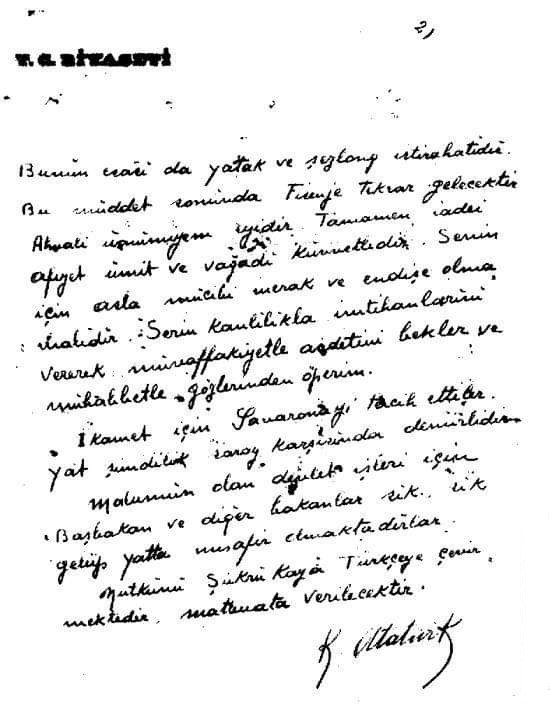 2)
T. C. RİYASETİ
Bunun esası da yatak ve şezlong istirahatidir.
Bu müddet sonunda Fisenje tekrar gelecektir
Ahvali umumiyem iyidir. Tamamen iadei
afiyet ümit ve vaadi kuvvetlidir. Senin
için asla mucibi merak ve endişe olma
malıdır. Serin kanlılıkla imtihanlarını
vererek muvaffakiyetle avdetini bekler ve
muhabbetle gözlerinden öperim.
İkamet için Savaronayı tercih ettiler.
yat şimdilik saray karşısında demirlidir.
Malumun olan devlet işleri için
Başbakan ve diğer bakanlar sık sık
gelüp yatta misafir olmaktadırlar.
Nutkunu Şükrü Kaya Türkçeye çevir
mektedir, matbuata verilecektir.
K. Atatürk